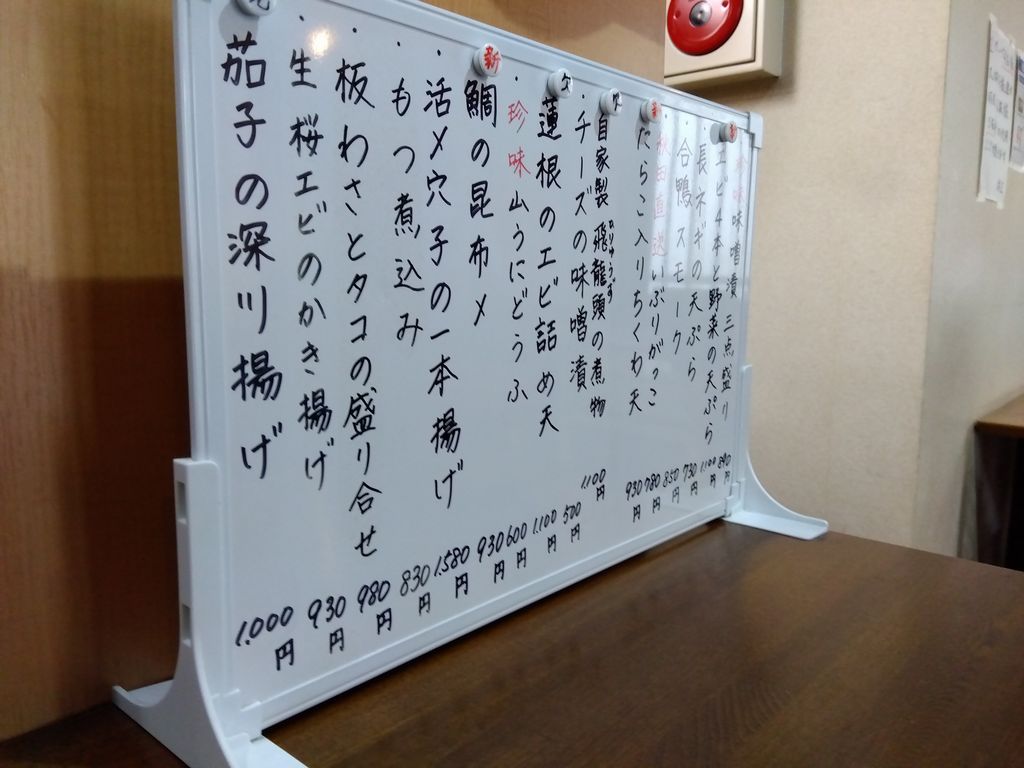 味噌漬三点盛り 890円
エビ4本と野菜の天ぷら 1,100円
長ネギの天ぷら 730円
合鴨スモーク 850円
秋田直送いぶりがっこ 780円
たらこ入りちくわ天 930円
自家製飛龍頭の煮物 1,100円
ひりゅうず
・チーズの味噌漬 500円
蓮根のエビ詰め天 1,100円
・珍味山うにどうふ 600円
新
鯛の昆布〆 930円
・活〆穴子の一本揚げ 1,580円
・もつ煮込み 830円
・板わさとタコの盛り合せ 980円
生桜エビのかき揚げ 930円
茄子の深川揚げ 1,000円